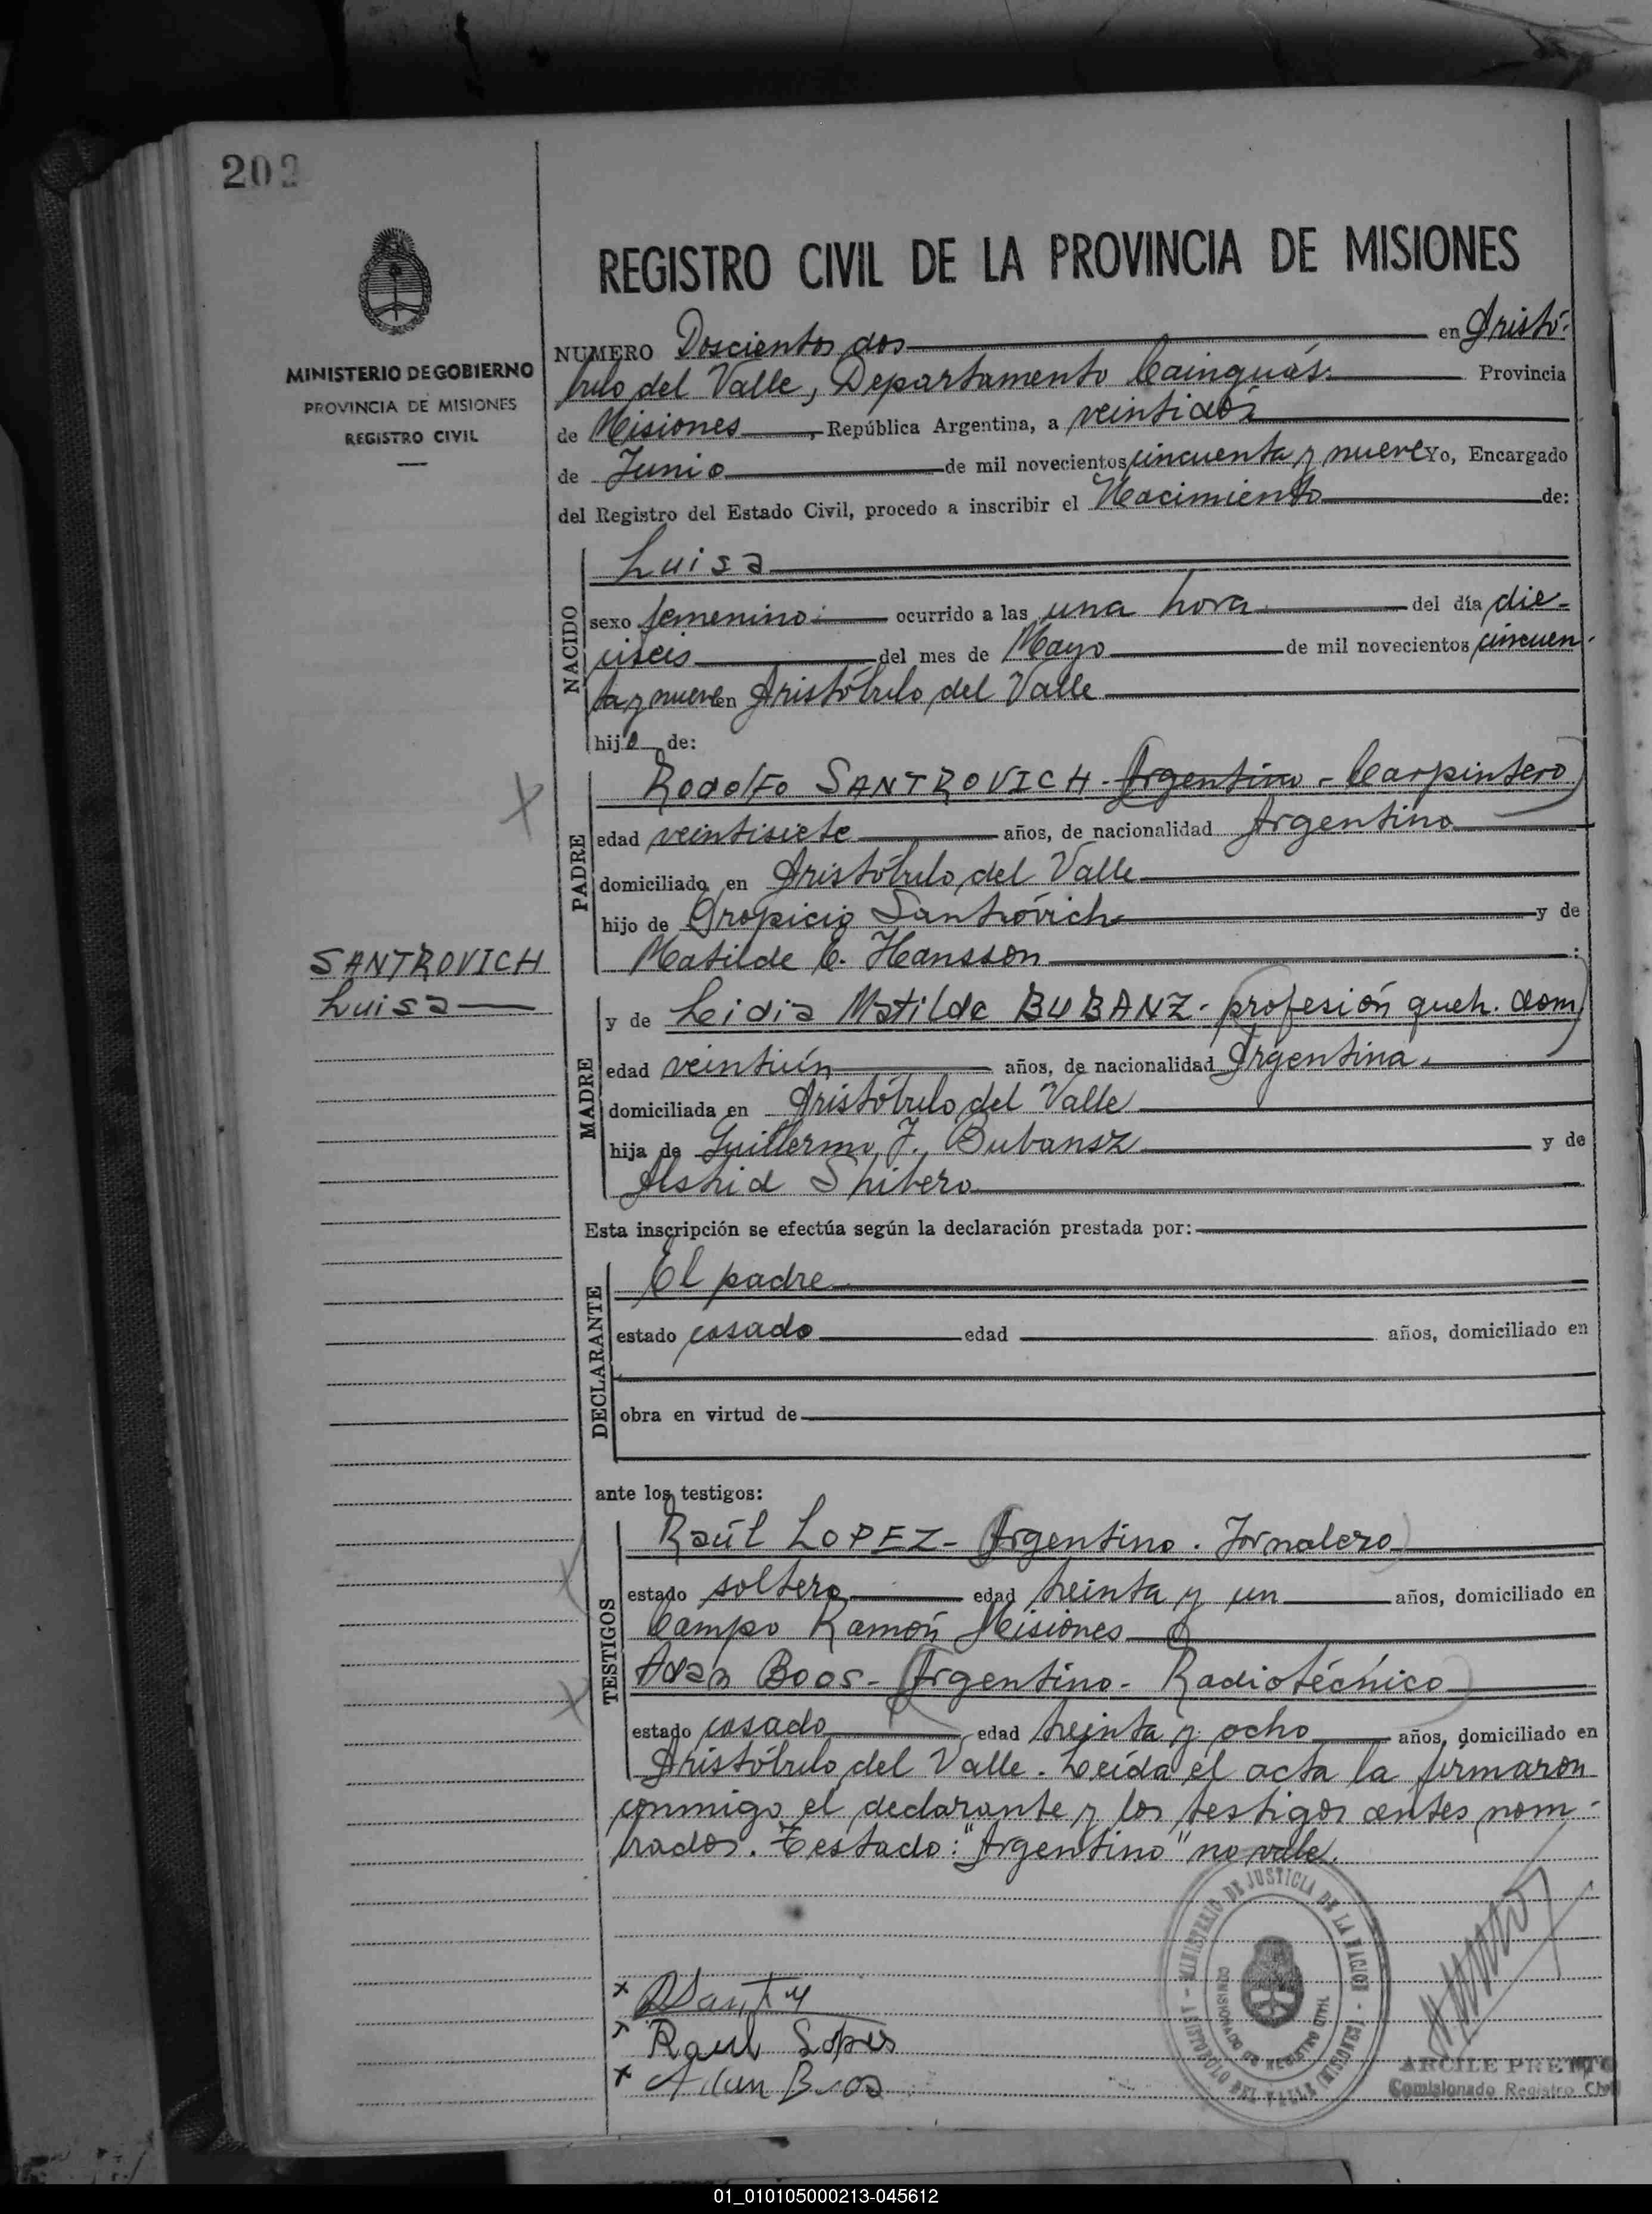 202
MINISTERIO DE GOBIERNO
PROVINCIA DE MISIONES
REGISTRO CIVIL
REGISTRO CIVIL DE LA PROVINCIA DE MISIONES
NUMERO Doscientos dos en Aristó-
bulo del Valle, Departamento Cainguás. Provincia
de Misiones, República Argentina, a veintidós
de Junio de mil novecientos cincuenta y nueve Yo, Encargado
del Registro del Estado Civil, procedo a inscribir el Nacimiento de:
NACIDO
Luisa
sexo femenino. ocurrido a las una hora del día die-
ciseis del mes de Mayo de mil novecientos cincuen-
ta y nueve en Aristóbulo del Valle
hija de:
PADRE
Rodolfo SANTROVICH - Argentino - Carpintero)
edad veintisiete años, de nacionalidad Argentino
domiciliado en Aristóbulo del Valle
hijo de Santróvich y de
Matilde C. Hansson
SANTROVICH
Luisa
MADRE
y de Leidia Matilde BUBANZ - (profesión queh. dom)
edad veintiún años, de nacionalidad Argentina.
domiciliada en Aristóbulo del Valle
hija de Guillermo J. Bubansz y de
Esta inscripción se efectúa según la declaración prestada por:
DECLARANTE
El padre
estado casado edad años, domiciliado en
obra en virtud de
ante los testigos:
TESTIGOS
Raúl LOPEZ - (Argentino. Jornalero)
estado soltero edad treinta y un años, domiciliado en
Campo Ramón Misiones
Adan Boos - (Argentino - Radiotécnico)
estado casado edad treinta y ocho años, domiciliado en
Aristóbulo del Valle. Leída el acta la firmaron
conmigo el declarante y los testigos antes nom-
brados. Testado: "Argentino" no vale.
MINISTERIO DE JUSTICIA DE LA NACION - ARISTOBULO DEL VALLE (MISIONES)
COMISIONADO DE REGISTRO CIVIL
Raul Lopes
Adan Boos
ARCILE PRETTO
Comisionado Registro Civil
01_010105000213-045612